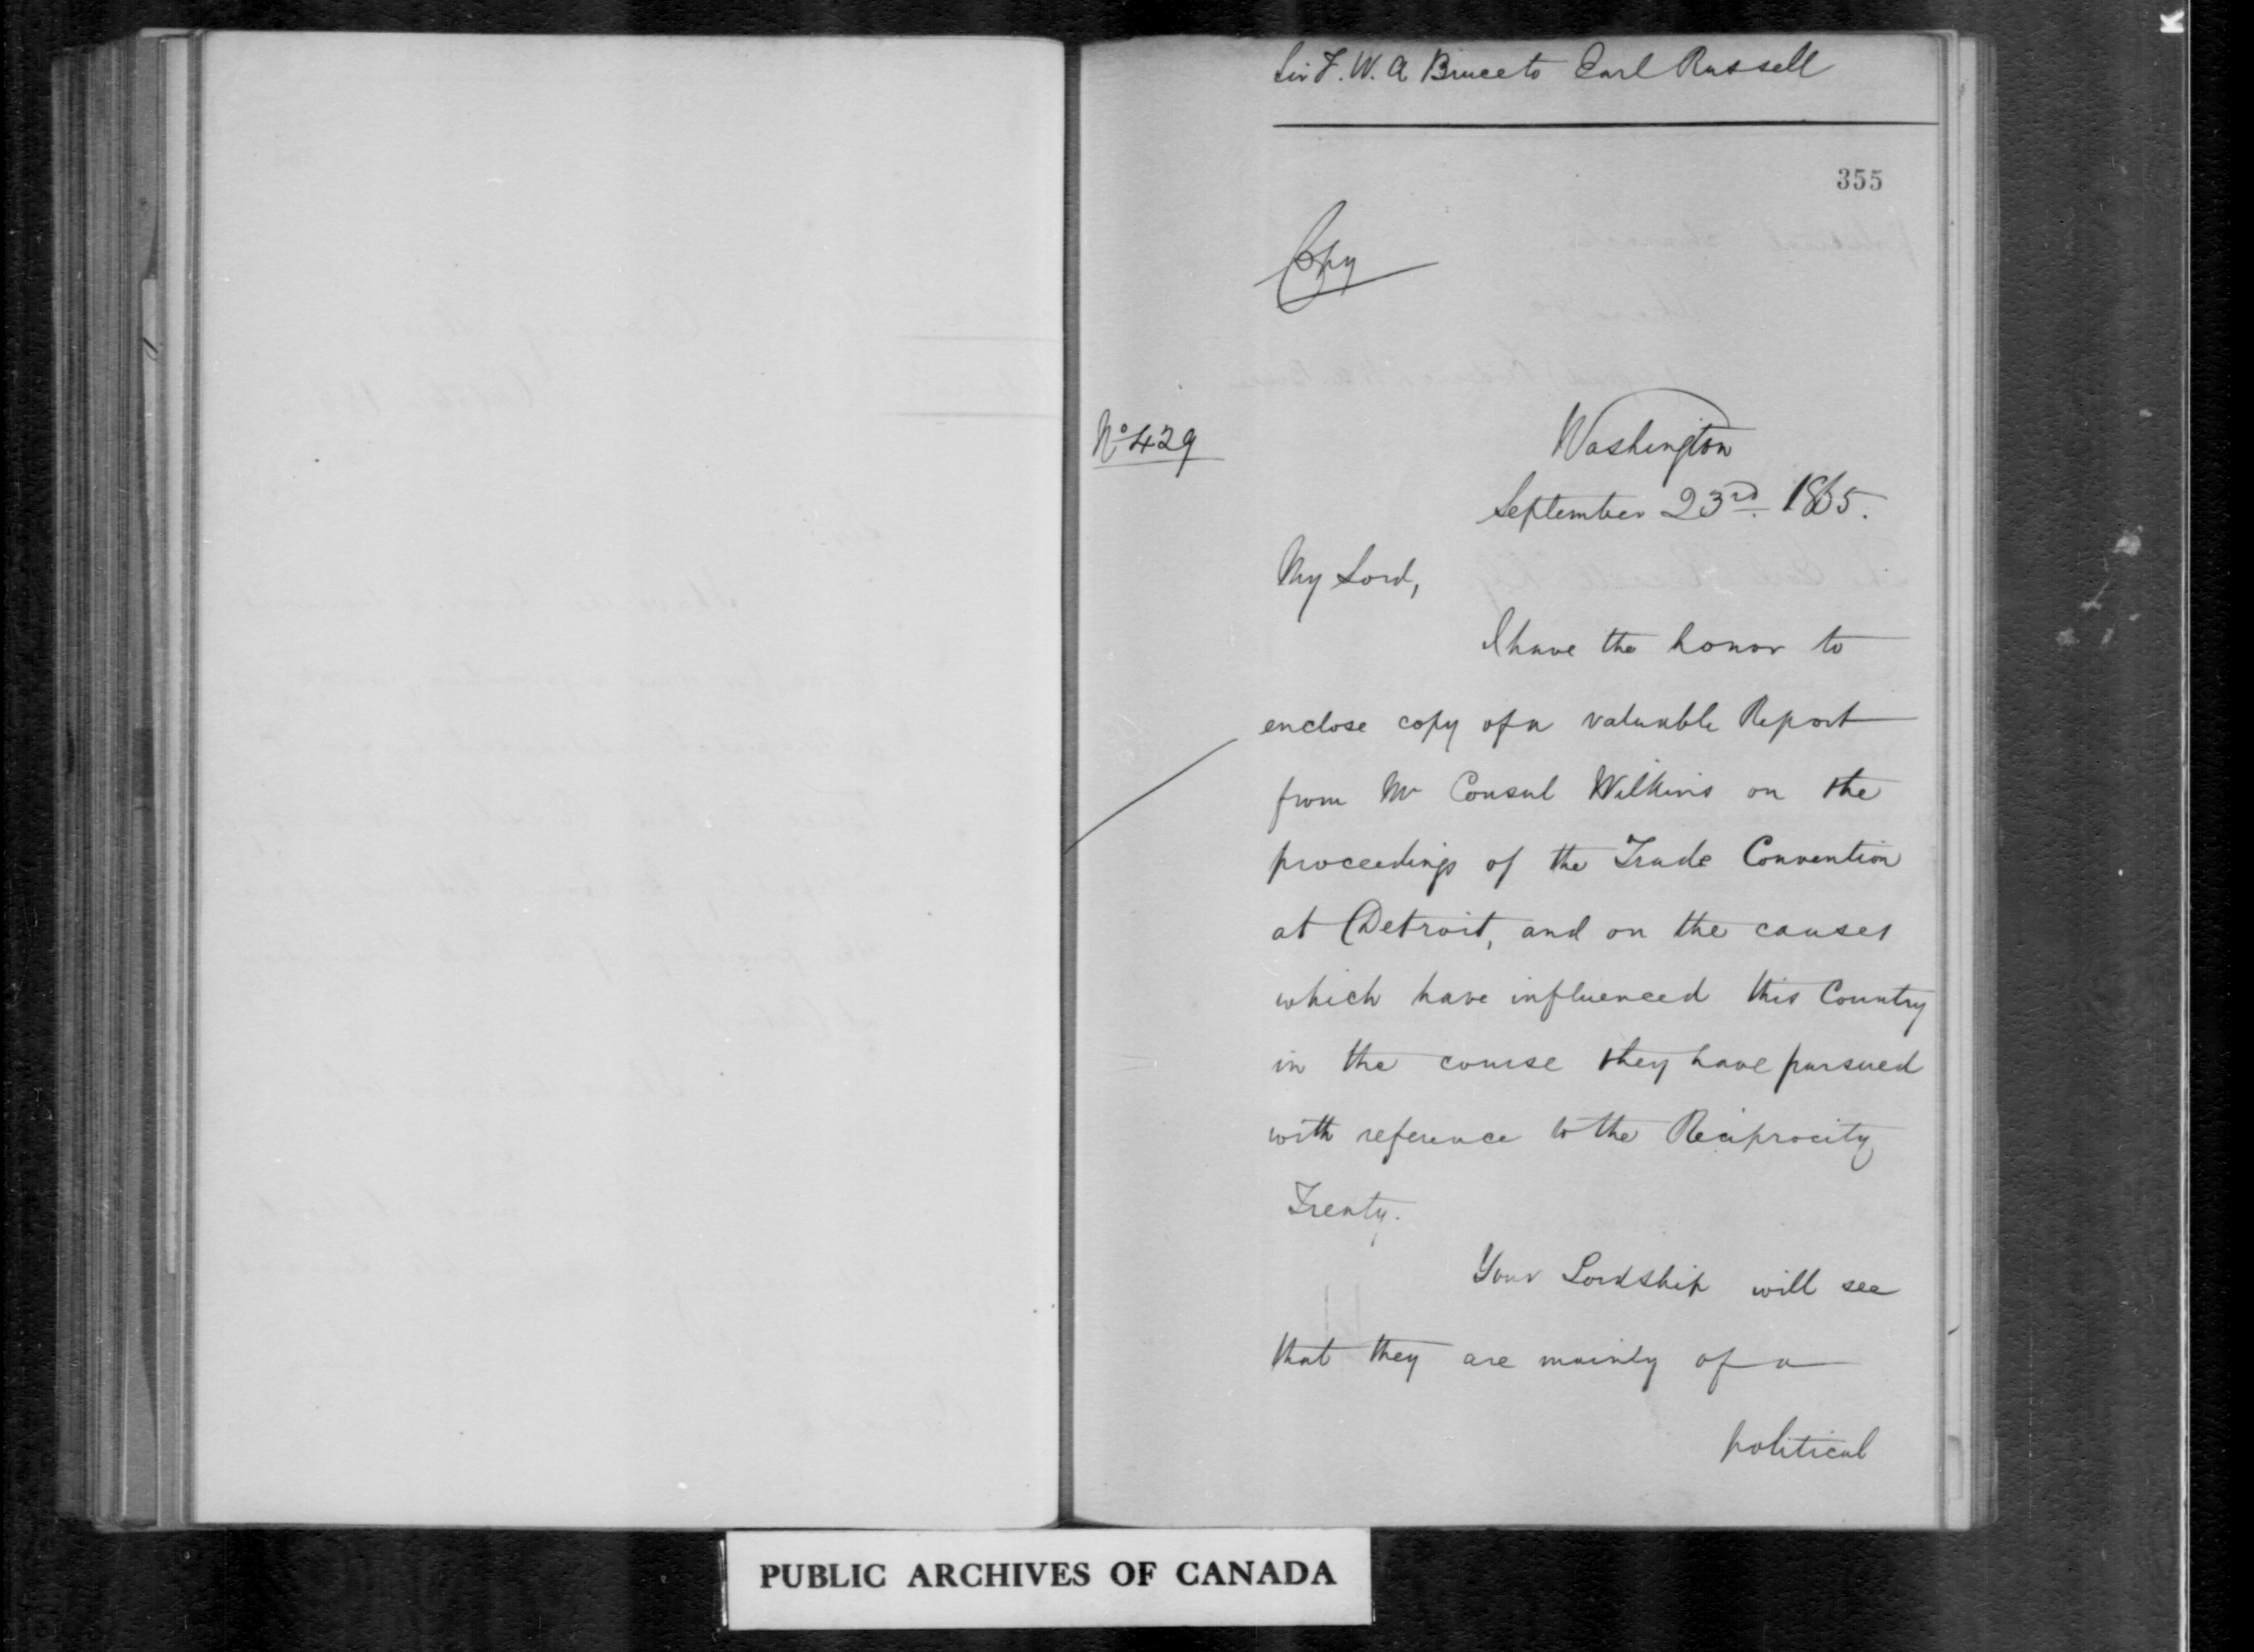 Sir F. W. A Bruce to Earl Russell
355
Copy
No 429
Washington
September 23rd. 1865.
My Lord,
I have the honor to
enclose copy of a valuable Report
from Mr Consul Wilkins on the
proceedings of the Trade Convention
at Detroit, and on the causes
which have influenced this Country
in the course they have pursued
with reference to the Reciprocity
Treaty.
Your Lordship will see
that they are mainly of a
political
PUBLIC ARCHIVES OF CANADA
K